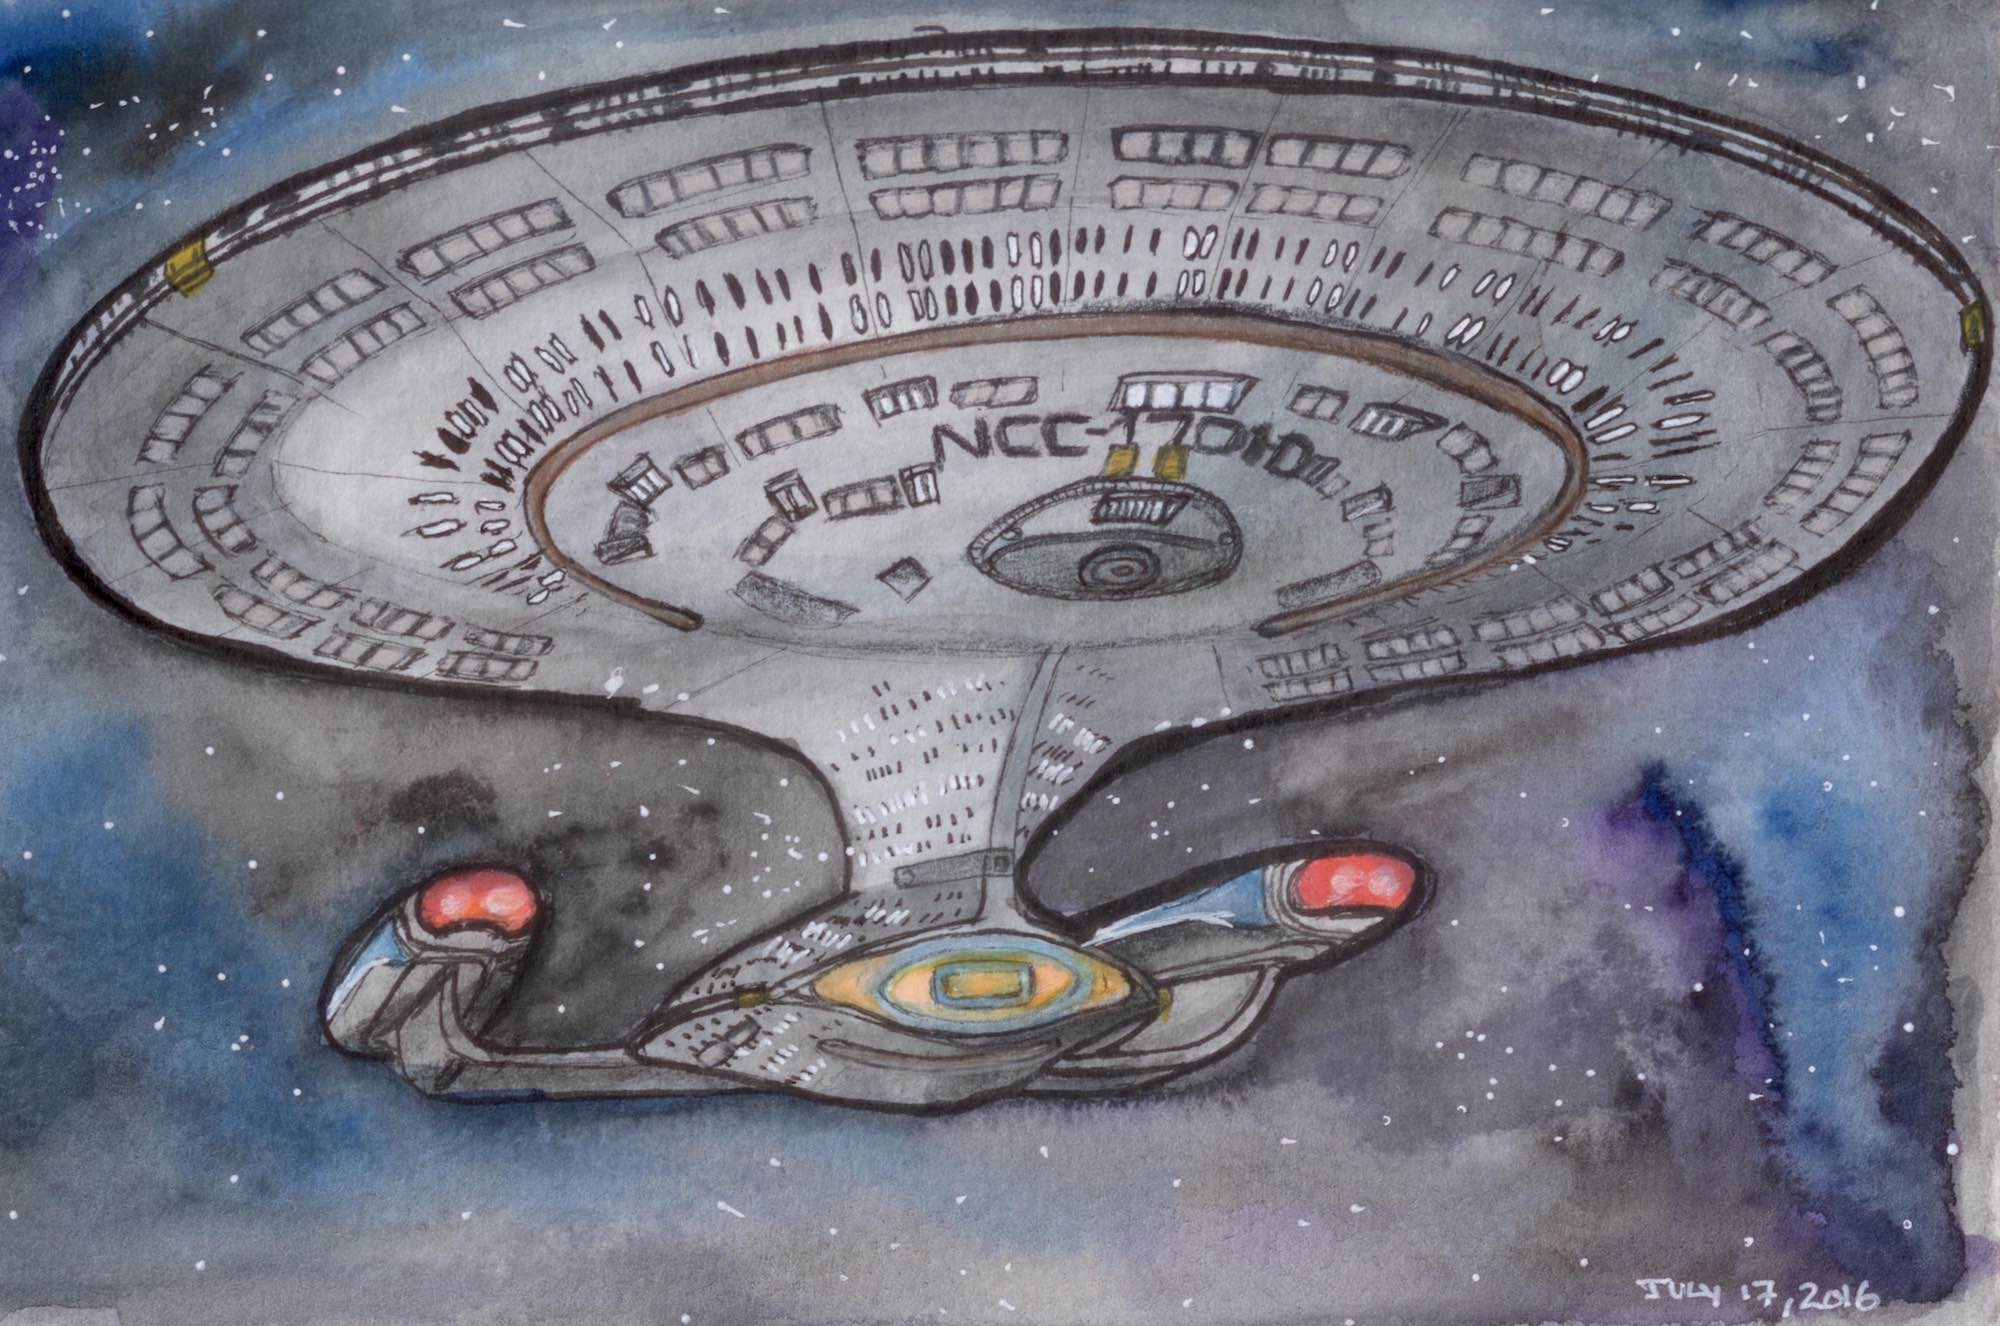 NCC-1701-D
JULY 17, 2016